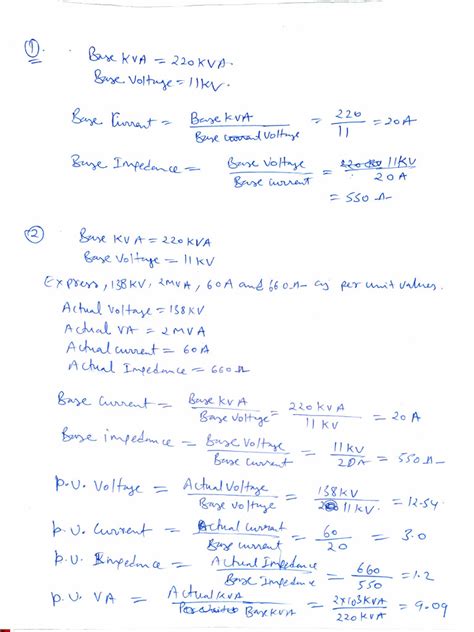 ①. Base KVA = 220KVA.
Base Voltage = 11KV.
Base Current = Base KVA / Base Voltage = 220 / 11 = 20A
Base Impedance = Base Voltage / Base Current = 11KV / 20A
= 550 Ω
② Base KVA = 220KVA
Base Voltage = 11KV
Express, 138KV, 2MVA, 60A and 660Ω as per unit values.
Actual Voltage = 138KV
Actual VA = 2MVA
Actual Current = 60A
Actual Impedance = 660Ω
Base Current = Base KVA / Base Voltage = 220KVA / 11KV = 20A
Base impedance = Base Voltage / Base Current = 11KV / 20A = 550Ω
p.u. Voltage = Actual Voltage / Base Voltage = 138KV / 11KV = 12.54.
p.u. Current = Actual Current / Base Current = 60 / 20 = 3.0
p.u. Impedance = Actual Impedance / Base Impedance = 660 / 550 = 1.2
p.u. VA = Actual KVA / Base KVA = 2×10³KVA / 220KVA = 9.09